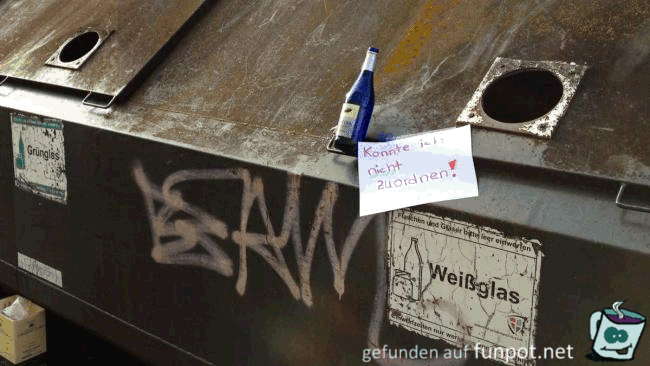 Grünglas
Konnte ich
nicht
zuordnen!
Flaschen und Gläser bitte leer einwerfen
Weißglas
Einwurfzeiten nur wer
gefunden auf funpot.net